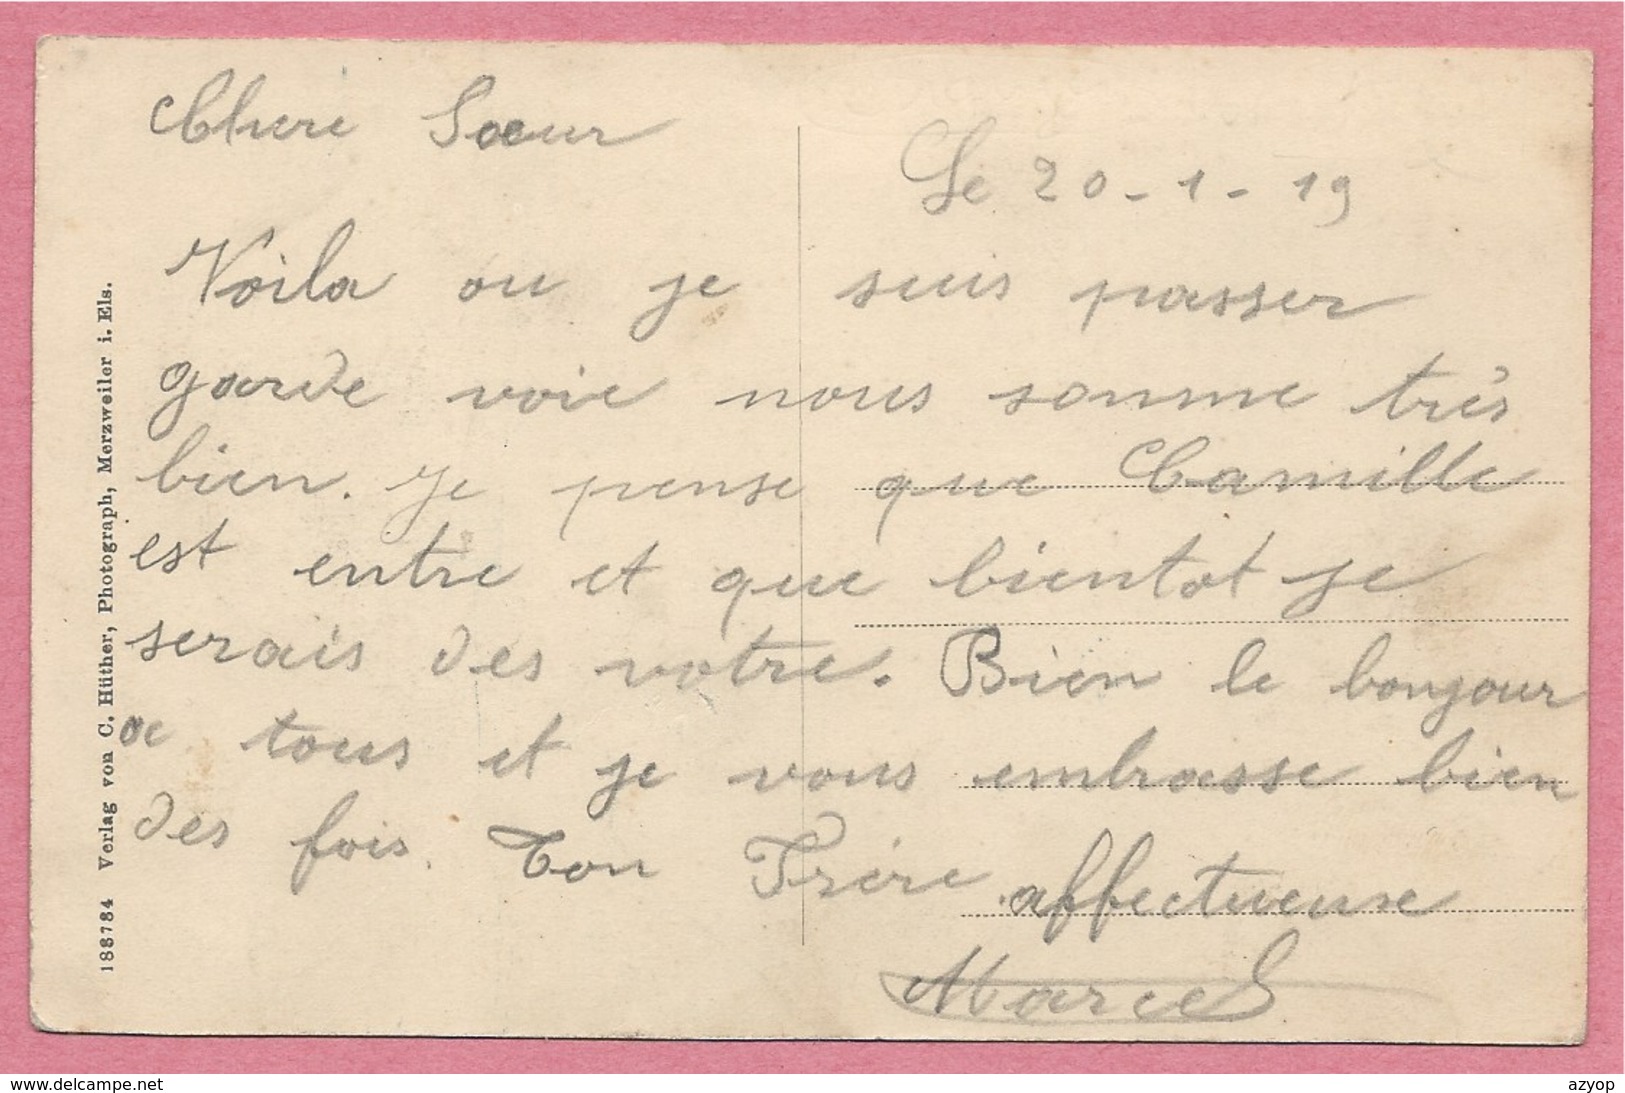 Chere Sœur
Le 20-1-19
Voila ou je suis passer
garde voie nous somme très
bien. Je pense que Camille
est entre et que bientot je
serais des votre. Bien le bonjour
a tous et je vous embrasse bien
des fois. Ton Frère affectueuse
Marcel
188784 Verlag von C. Hüther, Photograph, Merzweiler i. Els.
www.delcampe.net
azyop